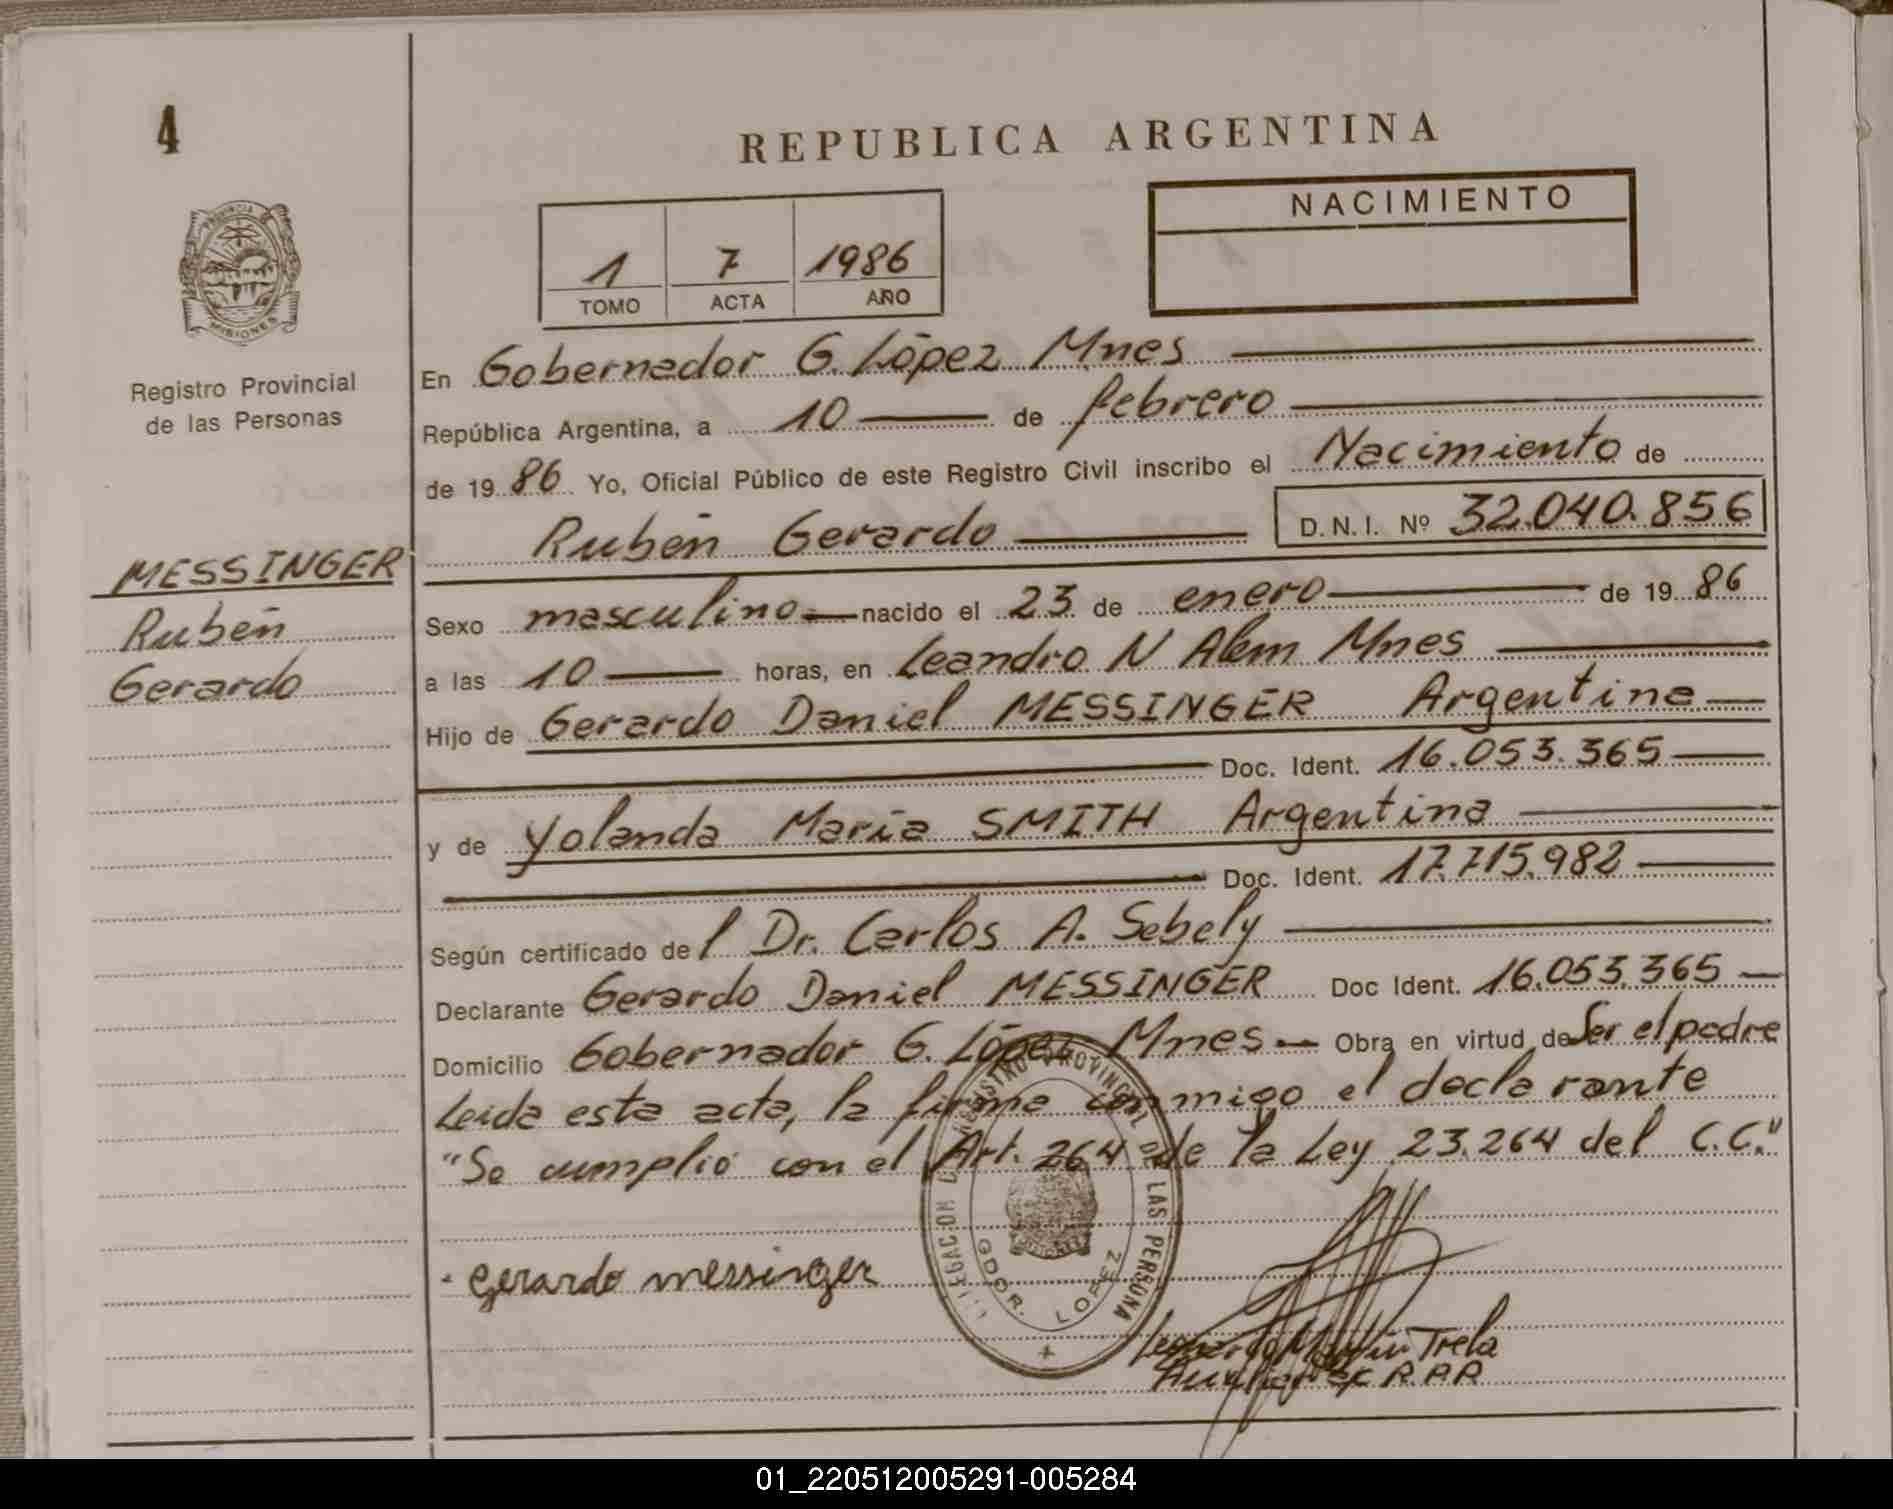 4
REPUBLICA ARGENTINA
NACIMIENTO
1 7 1986
TOMO ACTA AÑO
PROVINCIA
MISIONES
Registro Provincial
de las Personas
MESSINGER
Rubén
Gerardo
En Gobernador G. López Mnes
República Argentina, a 10 de febrero
de 19 86 Yo, Oficial Público de este Registro Civil inscribo el Nacimiento de
Rubén Gerardo D.N.I. Nº 32.040.856
Sexo masculino nacido el 23 de enero de 19 86
a las 10 horas, en Leandro N Alem Mnes
Hijo de Gerardo Daniel MESSINGER Argentina
Doc. Ident. 16.053.365
y de Yolanda María SMITH Argentina
Doc. Ident. 17.715.982
Según certificado de l Dr. Carlos A. Sebely
Declarante Gerardo Daniel MESSINGER Doc Ident. 16.053.365
Domicilio Gobernador G. López Mnes Obra en virtud de Ser el padre
Leida esta acta, la firma conmigo el declarante
"Se cumplió con el Art. 264 de la Ley 23.264 del C.C."
REGISTRO PROVINCIAL DE LAS PERSONA
GDOR. LOPEZ
Gerardo messinger
Martin Trela
R.P.P.
01_220512005291-005284